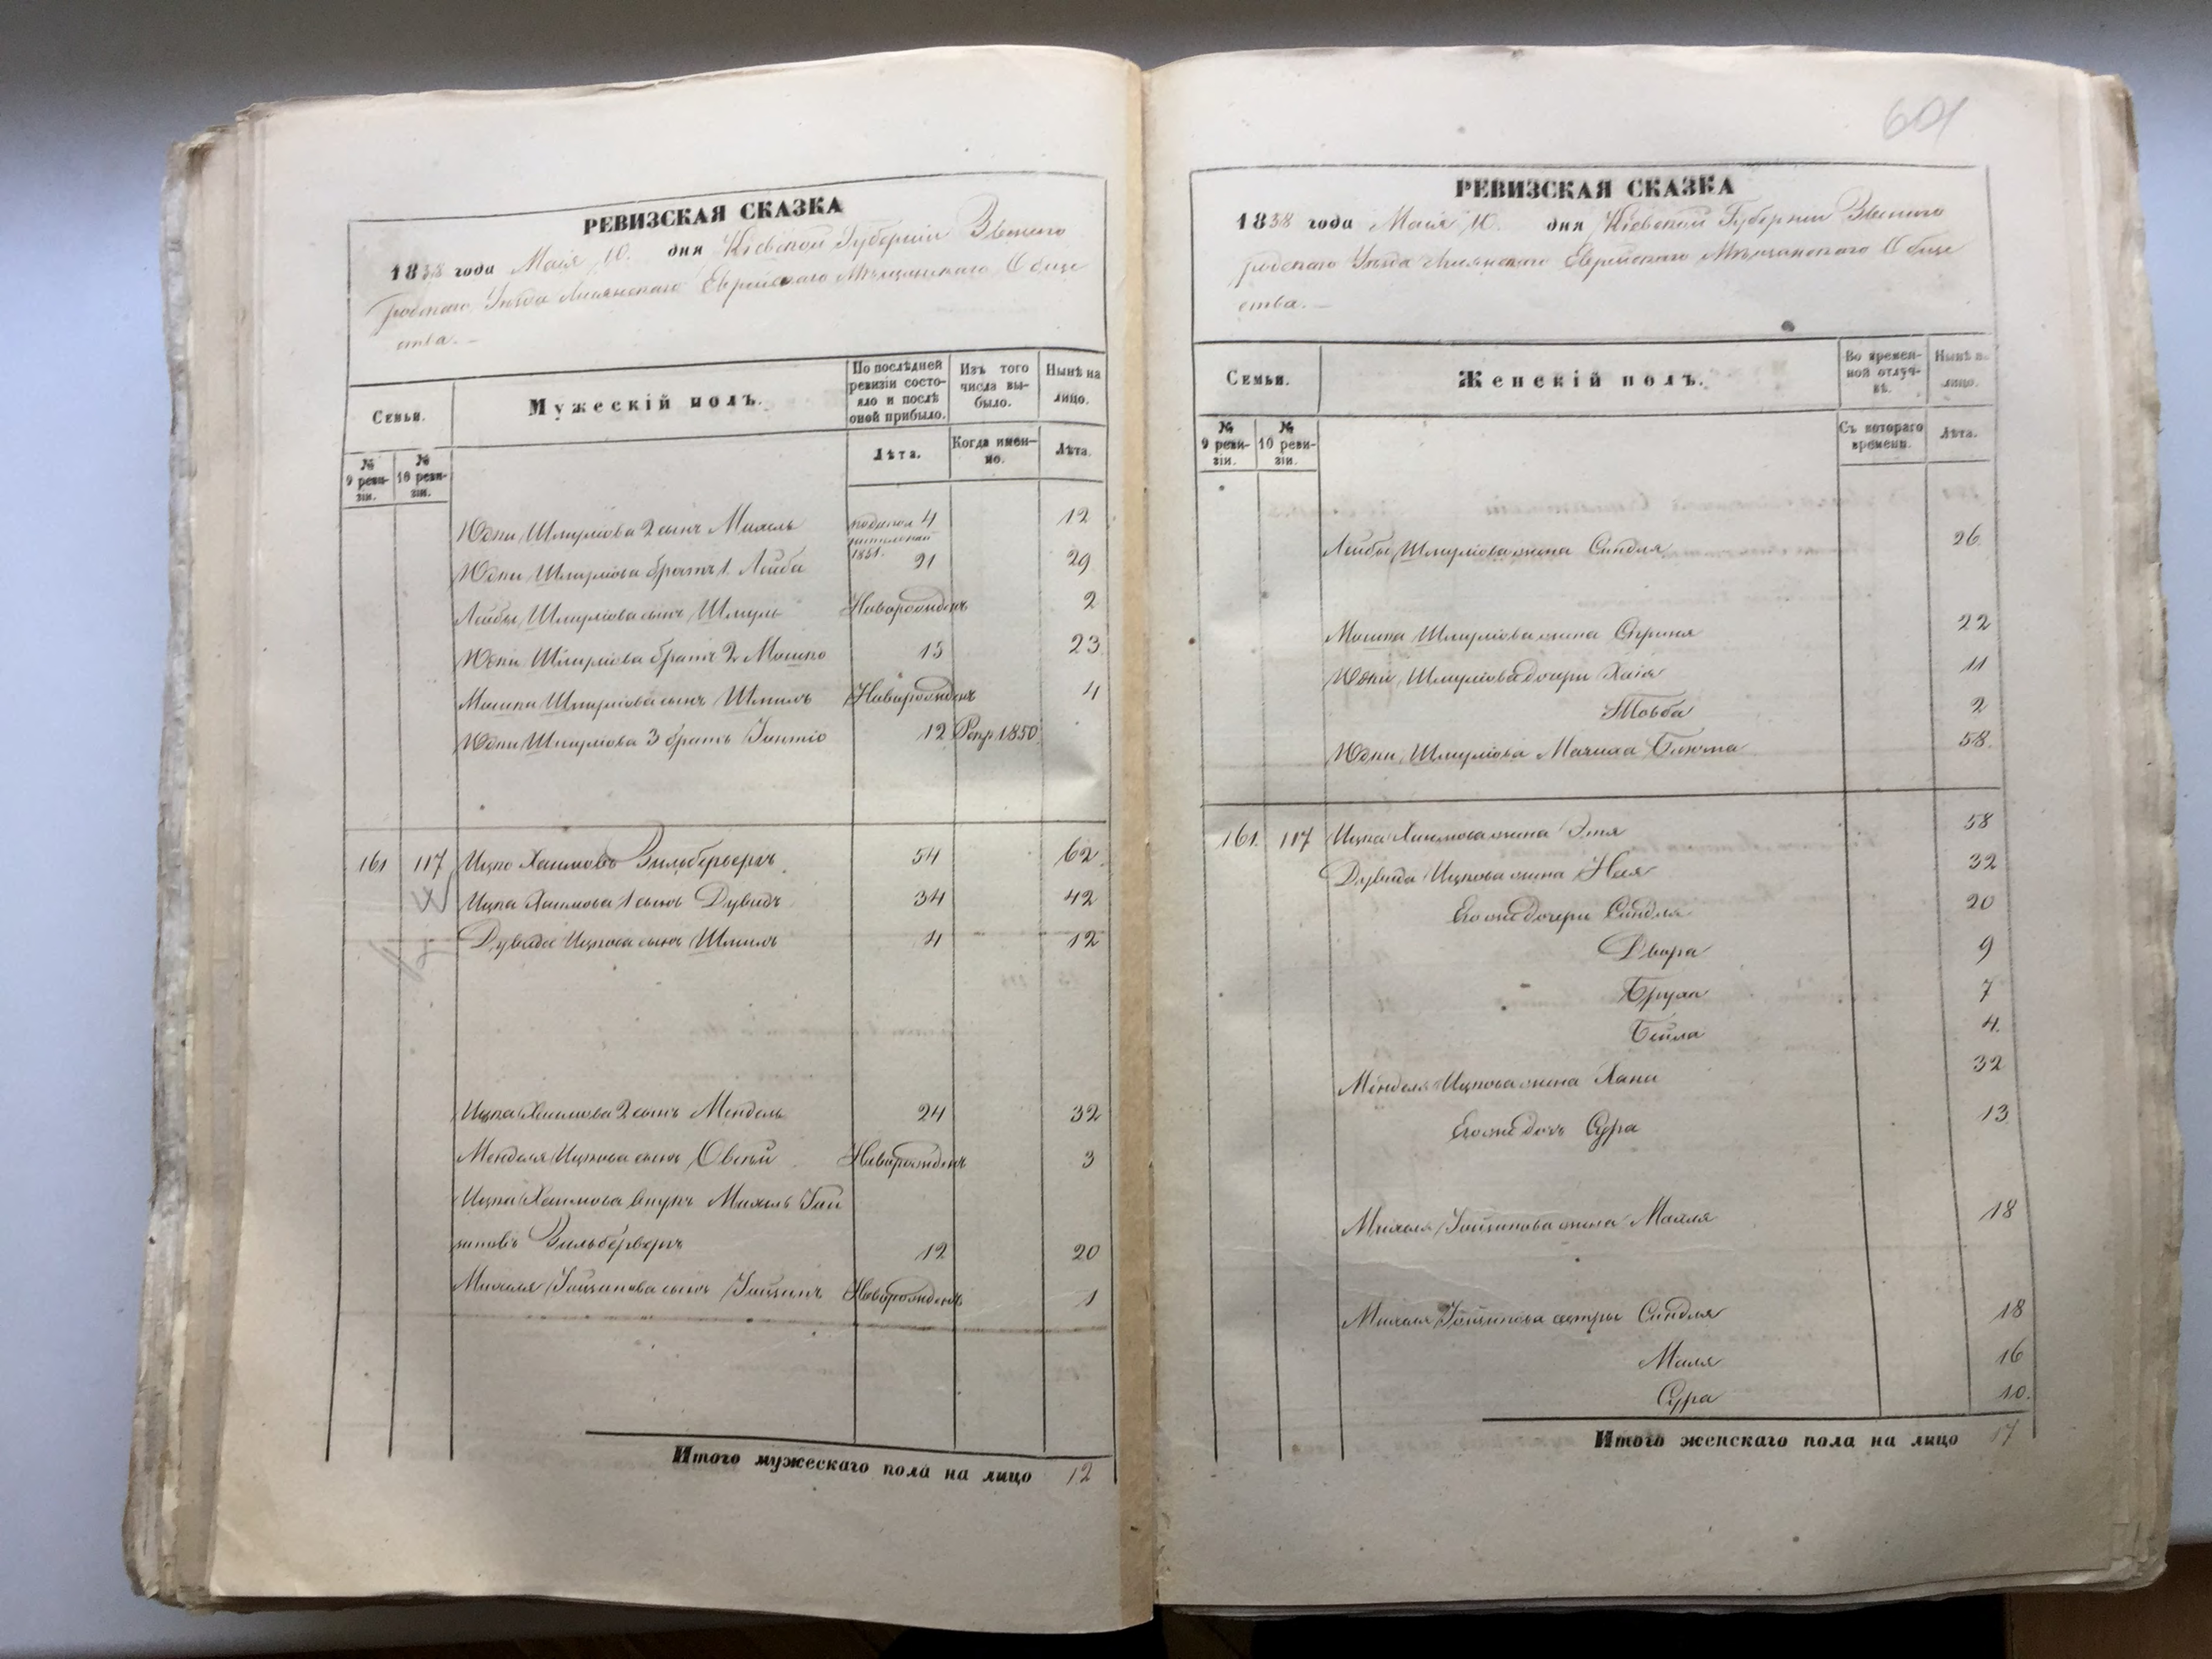 РЕВИЗСКАЯ СКАЗКА
1858 года Маія 10. дня Кіевской Губерніи Звениго
родскаго Уѣзда Лисянскаго Еврейскаго Мѣщанскаго Обще
ства.
Семьи.
Мужескій полъ.
По послѣдней ревизіи состояло и послѣ оной прибыло.
Изъ того числа выбыло.
Нынѣ на лицо.
№ 9 ревизіи.
№ 10 ревизіи.
Лѣта.
Когда именно.
Лѣта.
Юдки Шмулiова 2 сынъ Михель 4 12
1851.
Юдки Шмулiова братъ 1. Лейба 21 29
Лейбы Шмулiова сынъ Шмуль Новорожденъ 2
Юдки Шмулiова братъ 2 Мошко 15 23
Мошки Шмулiова сынъ Шмилъ Новорожденъ 4
Юдки Шмулiова 3 братъ 12 1850
161 117 Ицко Хаимовъ Зильбербергъ 54 62.
Ицка Хаимова 1 сынъ Дувидъ 34 42
Дувида Ицкова сынъ Шмилъ 4 12
Ицка Хаимова 2 сынъ Мендель 24 32
Менделя Ицкова сынъ Овсѣй Новорожденъ 3
Ицка Хаимова внукъ Михель Гай
Зильбербергъ 12 20
Михеля сынъ Новорожденъ 1
Итого мужескаго пола на лицо 12
601
РЕВИЗСКАЯ СКАЗКА
1858 года Маія 10. дня Кіевской Губерніи Звениго
родскаго Уѣзда Лисянскаго Еврейскаго Мѣщанскаго Обще
ства.
Семьи.
Женскій полъ.
Во временной отлучкѣ.
Нынѣ на лицо.
№ 9 ревизіи.
№ 10 ревизіи.
Съ котораго времени.
Лѣта.
Лейбы Шмулiова жена Синдля 26
Мошка Шмулiова жена Сприня 22
Юдки Шмулiова дочери Хаія 11
Товба 2
Юдки Шмулiова Мачиха Блюма 58.
161. 117 Ицка Хаимова жена Этя 58
Дувида Ицкова жена Нея 32
Его же дочери Синдля 20
Двора 9
Бруха 7
Бейла 4.
Менделя Ицкова жена Хана 32
Его же дочь Сура 13
Михеля жена Малля 18
Михеля сестры Синдля 18
Миля 16
Сура 10.
Итого женскаго пола на лицо 17